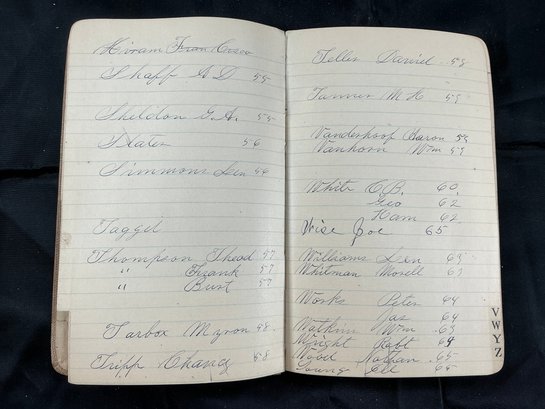 Hiram Francisco
Shaff A D 55
Shelilon G. A. 55
Slater 56
Simmons Len 56
Taggil
Thompson Thead 57
" Frank 57
" Burt 57
Tarbox Myron 58
Tripp Chancy 58
Teller David 58
Tanner M H 59
Vanderhoof Aaron 59
Vanhorn Wm 59
White C B. 60
Geo 62
Ham 62
Wise Joe 65
Williams Len 63
Whitman Mosell 63
Works Peter 64
Jas 64
Watkins Wm. 63
Wright Robt 64
Wood Nathan 65
Young Ell 65
V W Y Z